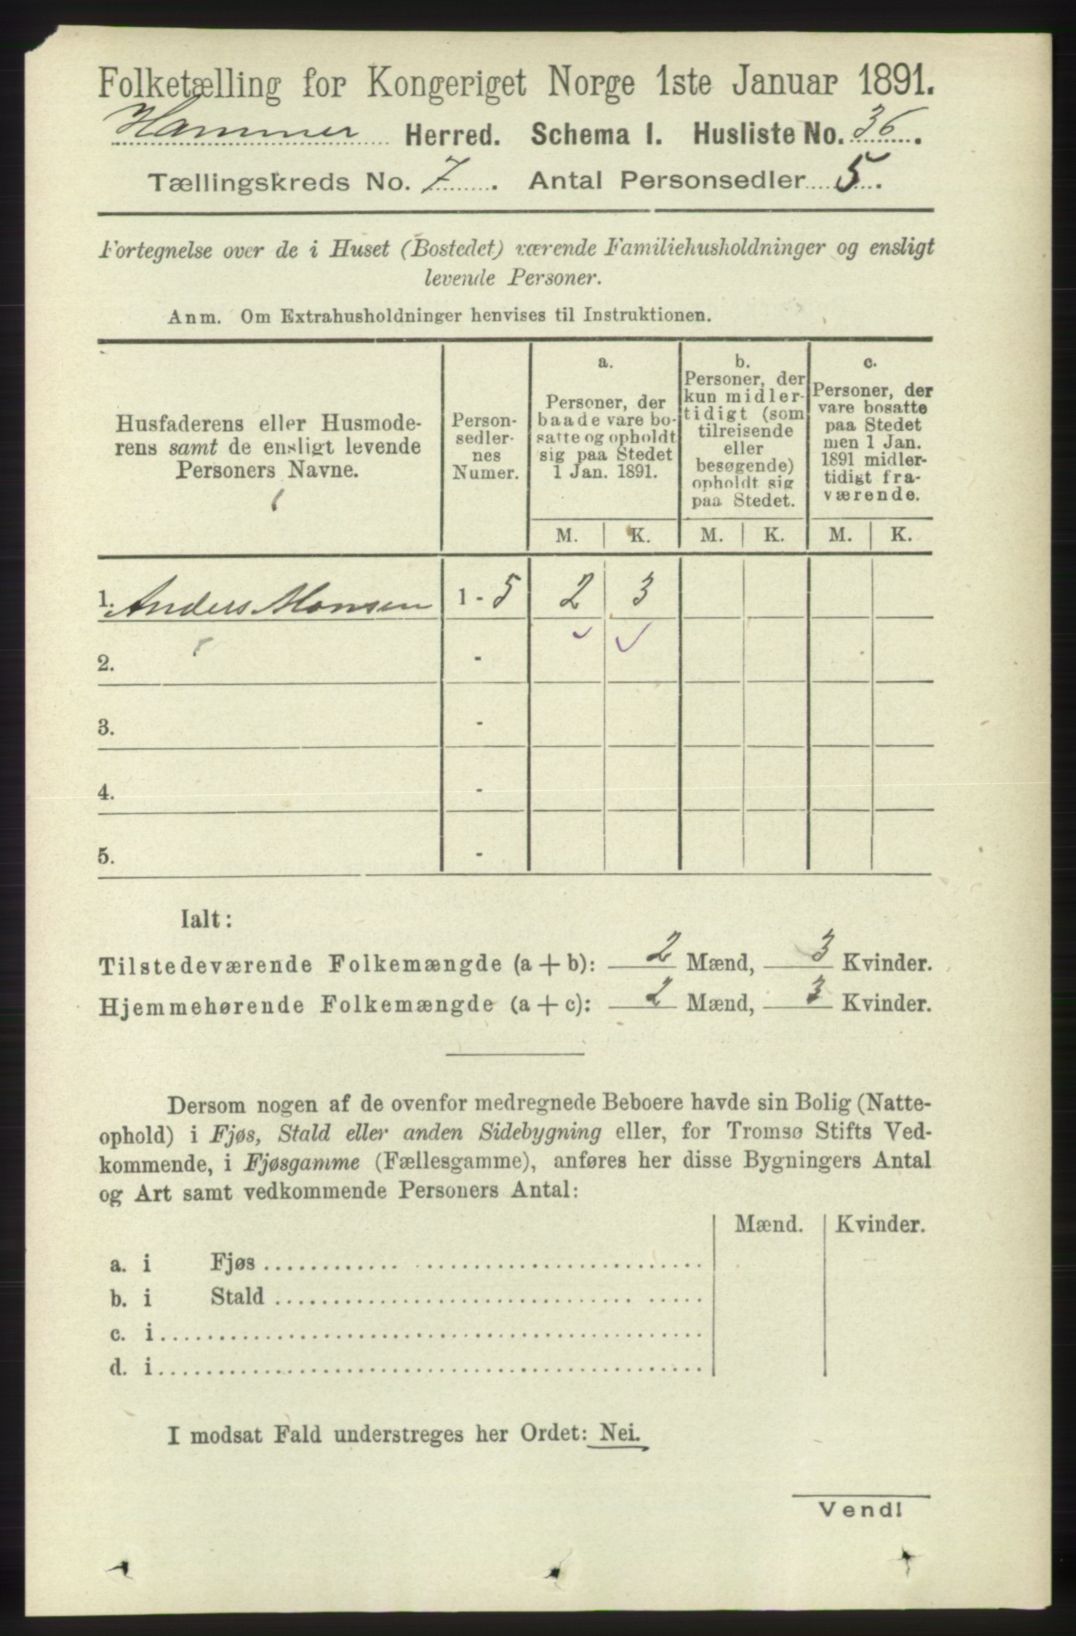 Folketælling for Kongeriget Norge 1ste Januar 1891.
Hammer Herred. Schema I. Husliste No. 36.
Tællingskreds No. 7. Antal Personsedler 5.
Fortegnelse over de i Huset (Bostedet) værende Familiehusholdninger og ensligt
levende Personer.
Anm. Om Extrahusholdninger henvises til Instruktionen.
Husfaderens eller Husmode-
rens samt de ensligt levende
Personers Navne.
Person-
sedler-
nes
Numer.
a.
Personer, der
baade vare bo-
satte og opholdt
sig paa Stedet
1 Jan. 1891.
b.
Personer, der
kun midler-
tidigt (som
tilreisende
eller
besøgende)
opholdt sig
paa Stedet.
c.
Personer, der
vare bosatte
paa Stedet
men 1 Jan.
1891 midler-
tidigt fra-
værende.
M. K. M. K. M. K.
1. Anders Monsen 1 - 5 2 3
2. -
3. -
4. -
5. -
Ialt:
Tilstedeværende Folkemængde (a + b): 2 Mænd, 3 Kvinder.
Hjemmehørende Folkemængde (a + c): 2 Mænd, 3 Kvinder.
Dersom nogen af de ovenfor medregnede Beboere havde sin Bolig (Natte-
ophold) i Fjøs, Stald eller anden Sidebygning eller, for Tromsø Stifts Ved-
kommende, i Fjøsgamme (Fællesgamme), anføres her disse Bygningers Antal
og Art samt vedkommende Personers Antal:
Mænd. Kvinder.
a. i Fjøs
b. i Stald
c. i
d. i
I modsat Fald understreges her Ordet: Nei.
Vend!